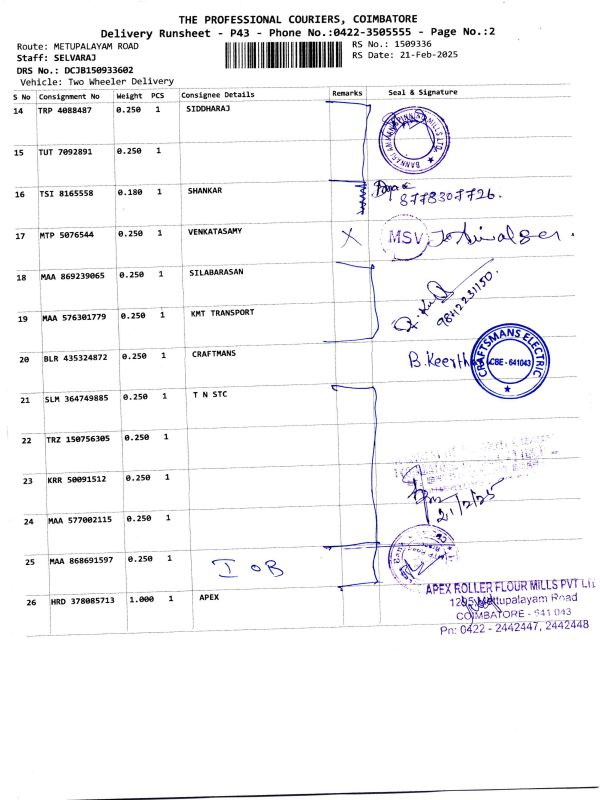 THE PROFESSIONAL COURIERS, COIMBATORE
Delivery Runsheet - P43 - Phone No.:0422-3505555 - Page No.:2
Route: METUPALAYAM ROAD
RS No.: 1509336
Staff: SELVARAJ
RS Date: 21-Feb-2025
DRS No.: DCJB150933602
Vehicle: Two Wheeler Delivery
S No Consignment No Weight PCS Consignee Details Remarks Seal & Signature
14 TRP 4088487 0.250 1 SIDDHARAJ
15 TUT 7092891 0.250 1
16 TSI 8165558 0.180 1 SHANKAR 8778307726.
17 MTP 5076544 0.250 1 VENKATASAMY X MSV
18 MAA 869239065 0.250 1 SILABARASAN
19 MAA 576301779 0.250 1 KMT TRANSPORT
20 BLR 435324872 0.250 1 CRAFTMANS B.Keerth CRAFTSMANS ELECTRIC CBE - 641043
21 SLM 364749885 0.250 1 T N STC
22 TRZ 150756305 0.250 1
23 KRR 50091512 0.250 1
21/2/25
24 MAA 577002115 0.250 1
25 MAA 868691597 0.250 1 IOB
26 HRD 378085713 1.000 1 APEX
APEX ROLLER FLOUR MILLS PVT LTD
1295 Mettupalayam Road
COIMBATORE - 641 043
Pn: 0422 - 2442447, 2442448